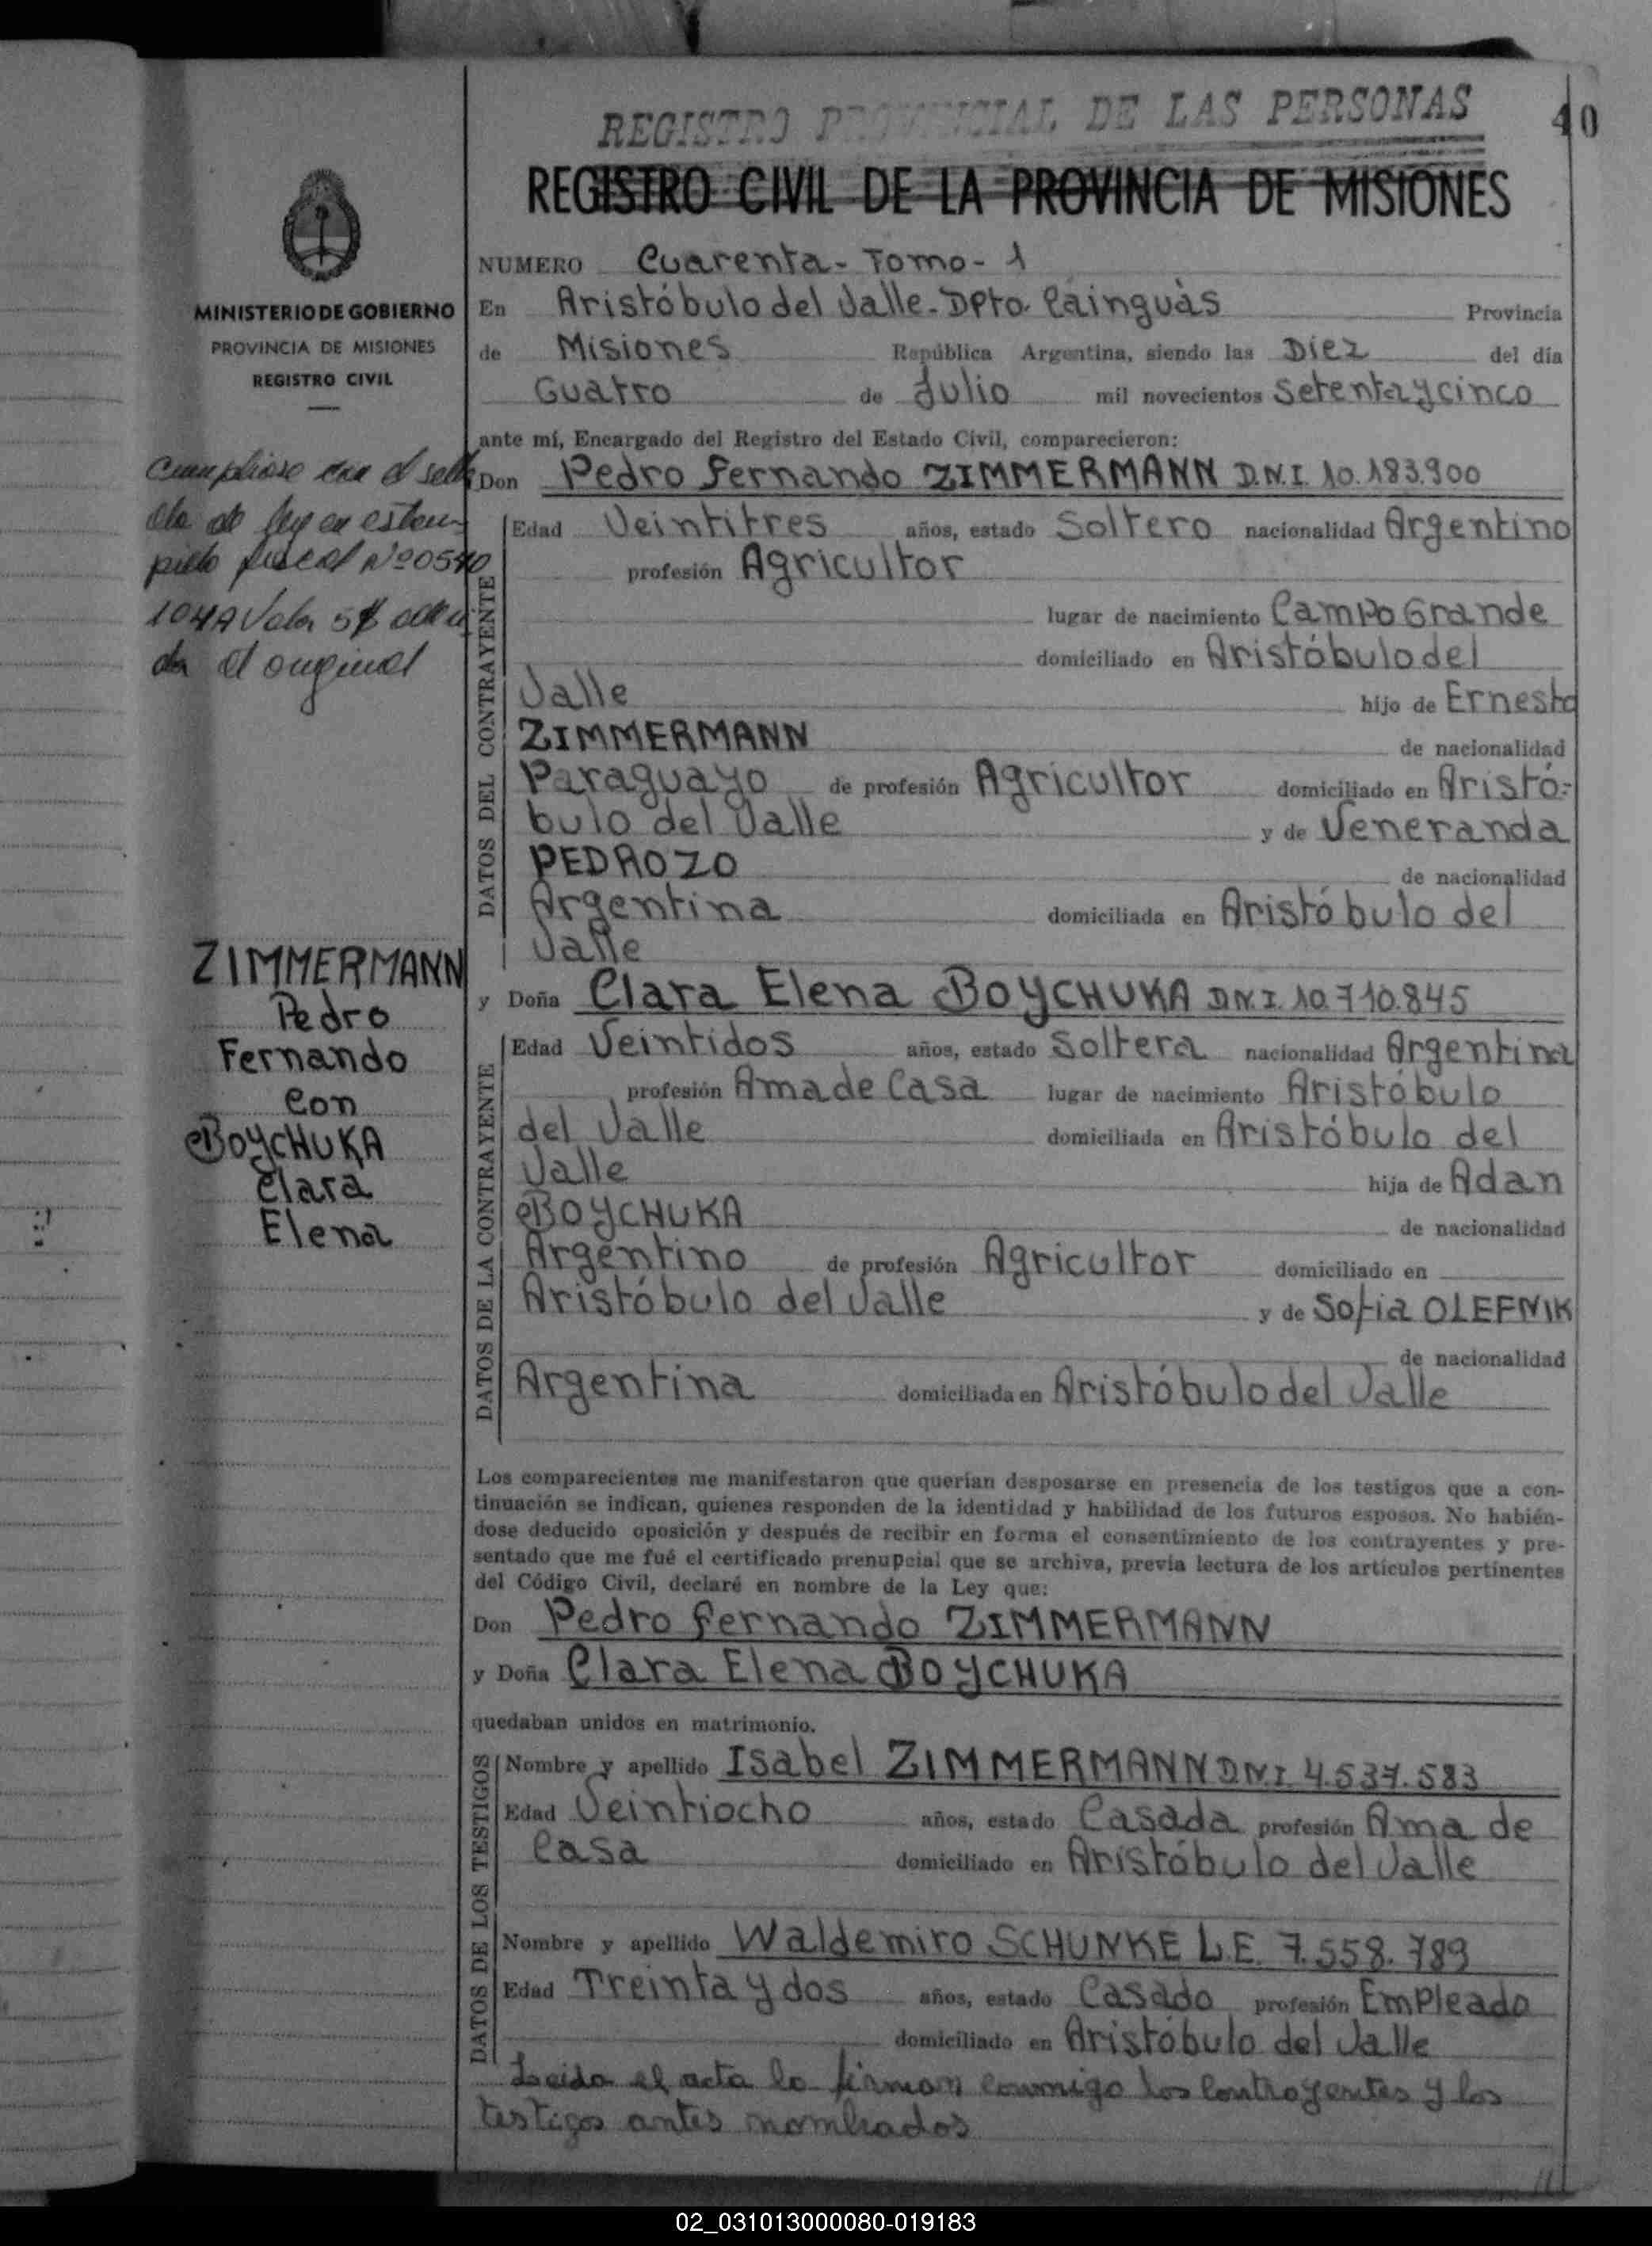 REGISTRO PROVINCIAL DE LAS PERSONAS
40
REGISTRO CIVIL DE LA PROVINCIA DE MISIONES
MINISTERIO DE GOBIERNO
PROVINCIA DE MISIONES
REGISTRO CIVIL
NUMERO Cuarenta - Tomo - 1
En Aristóbulo del Valle - Dpto. Cainguàs Provincia
de Misiones República Argentina, siendo las Diez del día
Cuatro de Julio mil novecientos Setenta y cinco
ante mí, Encargado del Registro del Estado Civil, comparecieron:
Don Pedro Fernando ZIMMERMANN D.N.I. 10.183.900
DATOS DEL CONTRAYENTE
Edad Veintitres años, estado Soltero nacionalidad Argentino
profesión Agricultor
lugar de nacimiento Campo Grande
domiciliado en Aristóbulo del
Valle hijo de Ernesto
ZIMMERMANN de nacionalidad
Paraguayo de profesión Agricultor domiciliado en Aristó-
bulo del Valle y de Veneranda
PEDROZO de nacionalidad
Argentina domiciliada en Aristóbulo del
Valle
y Doña Clara Elena BOYCHUKA D.N.I. 10.710.845
DATOS DE LA CONTRAYENTE
Edad Veintidos años, estado Soltera nacionalidad Argentina
profesión Ama de Casa lugar de nacimiento Aristóbulo
del Valle domiciliada en Aristóbulo del
Valle hija de Adan
BOYCHUKA de nacionalidad
Argentino de profesión Agricultor domiciliado en
Aristóbulo del Valle y de Sofia OLEFNIK
de nacionalidad
Argentina domiciliada en Aristóbulo del Valle
Los comparecientes me manifestaron que querían desposarse en presencia de los testigos que a con-
tinuación se indican, quienes responden de la identidad y habilidad de los futuros esposos. No habién-
dose deducido oposición y después de recibir en forma el consentimiento de los contrayentes y pre-
sentado que me fué el certificado prenupcial que se archiva, previa lectura de los artículos pertinentes
del Código Civil, declaré en nombre de la Ley que:
Don Pedro Fernando ZIMMERMANN
y Doña Clara Elena BOYCHUKA
quedaban unidos en matrimonio.
DATOS DE LOS TESTIGOS
Nombre y apellido Isabel ZIMMERMANN D.N.I. 4.537.583
Edad Veintiocho años, estado Casada profesión Ama de
Casa domiciliado en Aristóbulo del Valle
Nombre y apellido Waldemiro SCHUNKE L.E. 7.558.789
Edad Treinta y dos años, estado Casado profesión Empleado
domiciliado en Aristóbulo del Valle
Leida el acta lo firman conmigo los Contrayentes y los
testigos antes nombrados
Cumpliose con el sella
do de ley en estam-
pilla fiscal Nº 0540
104A Valor 5$
el original
ZIMMERMANN
Pedro
Fernando
Con
BOYCHUKA
Clara
Elena
02_031013000080-019183